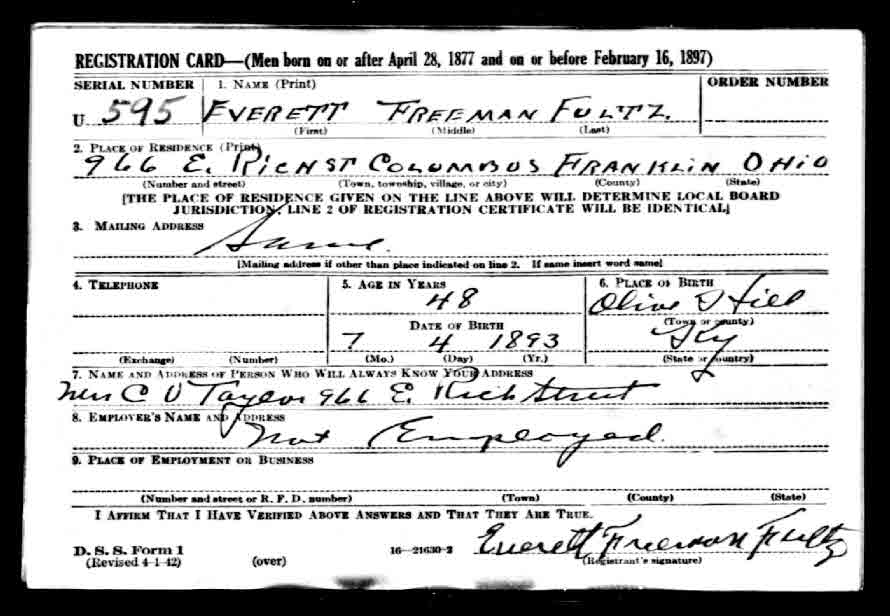 REGISTRATION CARD—(Men born on or after April 28, 1877 and on or before February 16, 1897)
SERIAL NUMBER 1. NAME (Print) ORDER NUMBER
U 595 EVERETT FREEMAN FULTZ
(First) (Middle) (Last)
2. PLACE OF RESIDENCE (Print)
966 E. RICH ST COLUMBUS FRANKLIN OHIO
(Number and street) (Town, township, village, or city) (County) (State)
[THE PLACE OF RESIDENCE GIVEN ON THE LINE ABOVE WILL DETERMINE LOCAL BOARD
JURISDICTION; LINE 2 OF REGISTRATION CERTIFICATE WILL BE IDENTICAL]
3. MAILING ADDRESS
Same.
[Mailing address if other than place indicated on line 2. If same insert word same]
4. TELEPHONE 5. AGE IN YEARS 6. PLACE OF BIRTH
48 Olive Hill
DATE OF BIRTH (Town or county)
7 4 1893 Ky
(Exchange) (Number) (Mo.) (Day) (Yr.) (State or country)
7. NAME AND ADDRESS OF PERSON WHO WILL ALWAYS KNOW YOUR ADDRESS
Mrs C V Taylor 966 E. Rich Street
8. EMPLOYER'S NAME AND ADDRESS
Not Employed.
9. PLACE OF EMPLOYMENT OR BUSINESS
(Number and street or R. F. D. number) (Town) (County) (State)
I AFFIRM THAT I HAVE VERIFIED ABOVE ANSWERS AND THAT THEY ARE TRUE.
D. S. S. Form 1 16—21630-2 Everett Freeman Fultz
(Revised 4-1-42) (over) (Registrant's signature)